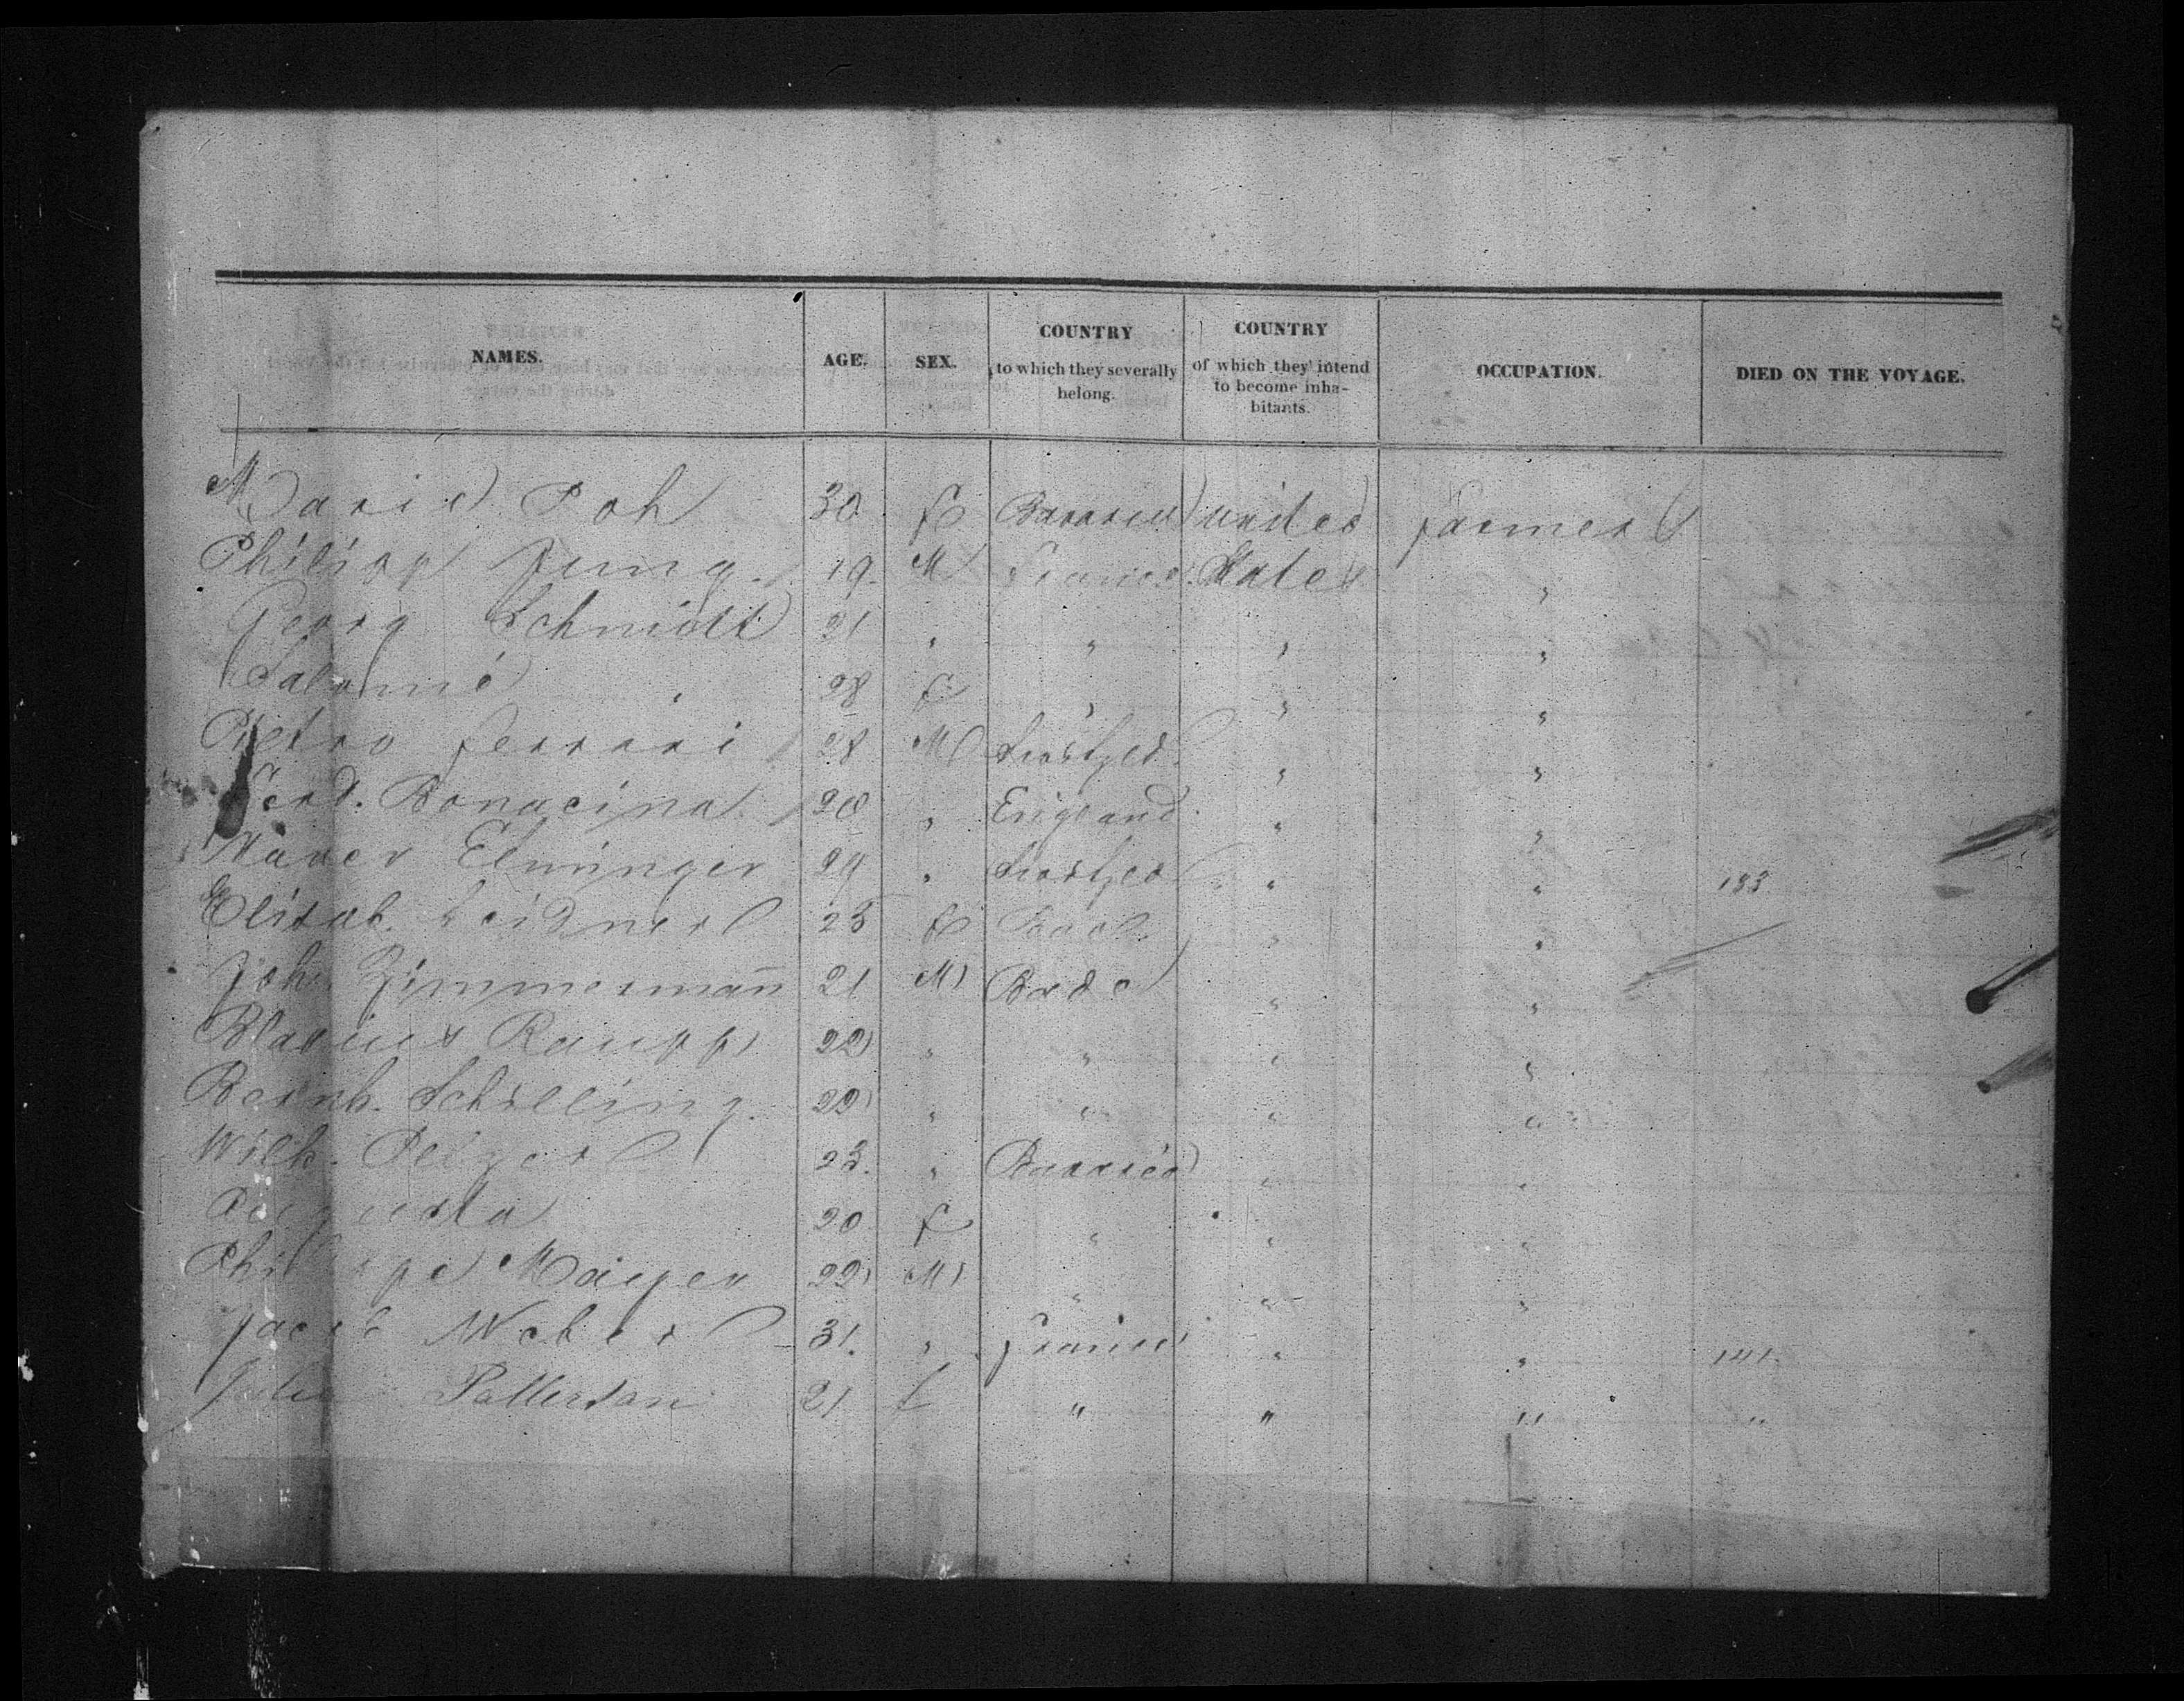 NAMES. AGE. SEX. COUNTRY to which they severally belong. COUNTRY of which they intend to become inhabitants. OCCUPATION. DIED ON THE VOYAGE.
Marie Poh 30 f Bavaria united farmer
Philipp Jung. 19. M France States "
Georg Schmidt 21 " " " "
Salomé " 28 f " " "
Pietro Ferrari 28 M " "
Ferd. Bonacina 28 " England " "
Xaver Elminger 29 " " " 133
Elisab. Leidner 25 f " "
Joh. Zimmermann 21 M Bade " "
Blasius Raupp 22 " " " "
Bernh. Schilling. 22 " " " "
Wilh. 23. " Bavaria " "
Augusta 20 f " " "
Philippe Mayer 22 M " " "
Jacob Weber 31. " France " " 141
Patterson 21 f " " " "